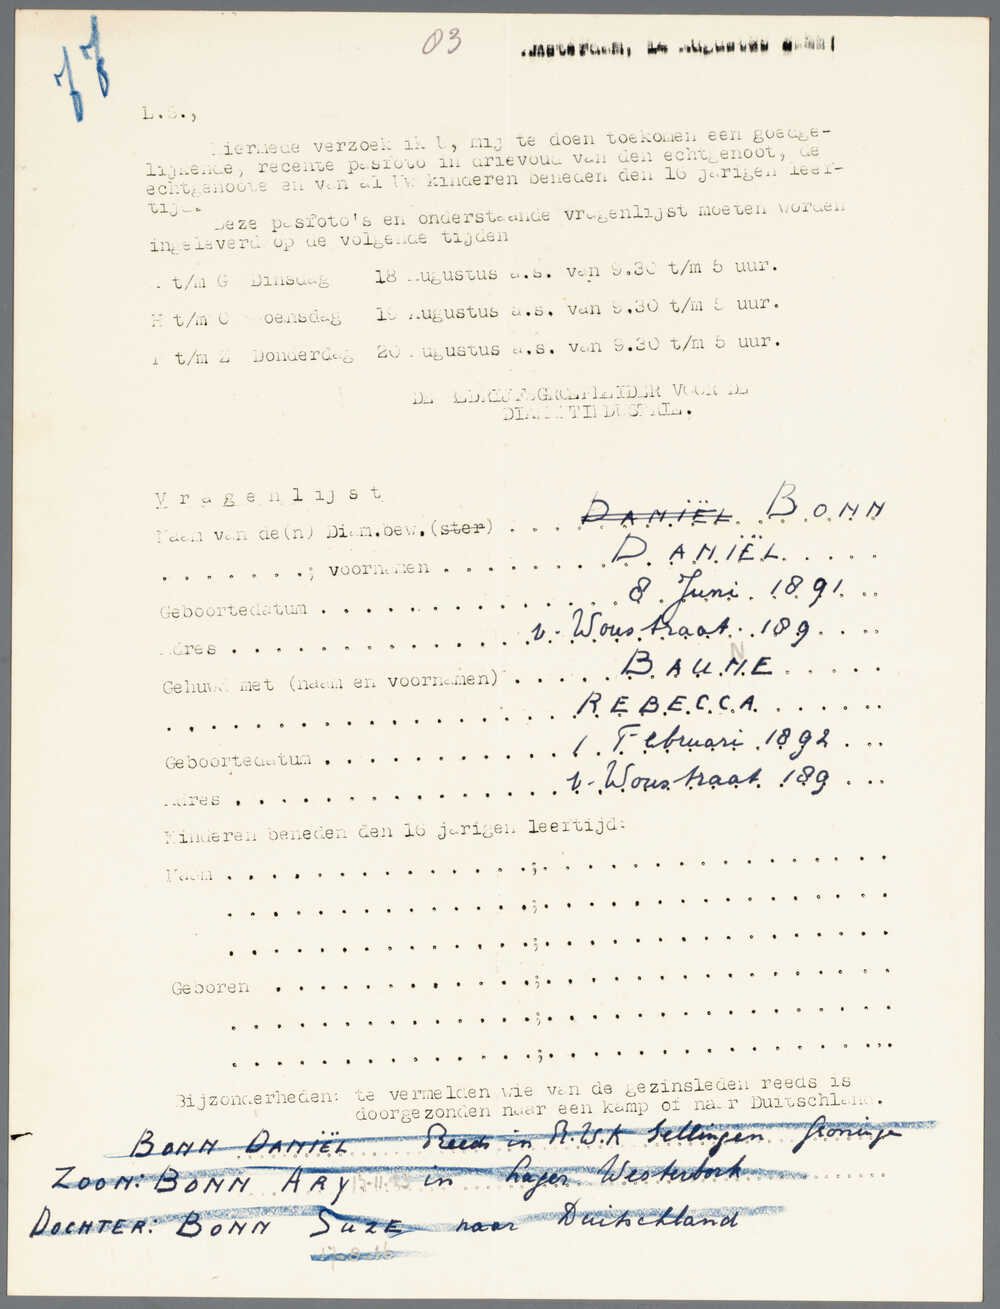 03
Amsterdam, 14 Augustus 1942
L.S.,
Hiermede verzoek ik U, mij te doen toekomen een goedge-
lijkende, recente pasfoto in drievoud van den echtgenoot, de
echtgenoote en van al Uw kinderen beneden den 16 jarigen leef-
tijd.
Deze pasfoto's en onderstaande vragenlijst moeten worden
ingeleverd op de volgende tijden
A t/m G Dinsdag 18 Augustus a.s. van 9.30 t/m 5 uur.
H t/m O Woensdag 19 Augustus a.s. van 9.30 t/m 5 uur.
P t/m Z Donderdag 20 Augustus a.s. van 9.30 t/m 5 uur.
DE BEDRIJFSGROEPLEIDER VOOR DE
DIAMANTINDUSTRIE.
Vragenlijst
Naam van de(n) Diam.bew.(ster) . . . DANIËL BONN
. . . . . . . ; voornamen . . . . . . . . DANIËL . . . . .
Geboortedatum . . . . . . . . . . . . . . 8 Juni 1891 . .
Adres . . . . . . . . . . . . . v. Woustraat 189 . . .
N
Gehuwd met (naam en voornamen) . . . . . BAUME . . . . .
. . . . . . . . . . . . . . . . . . REBECCA . . . . . .
Geboortedatum . . . . . . . . . . . 1 Februari 1892 . . .
Adres . . . . . . . . . . . . . . . v. Woustraat 189 . . .
Kinderen beneden den 16 jarigen leeftijd:
Naam . . . . . . . . . . . . . . . . ; . . . . . . . . . . . . . . . .
. . . . . . . . . . . . . . . . ; . . . . . . . . . . . . . . . .
. . . . . . . . . . . . . . . . ; . . . . . . . . . . . . . . . .
Geboren . . . . . . . . . . . . . . ; . . . . . . . . . . . . . . . .
. . . . . . . . . . . . . . . . ; . . . . . . . . . . . . . . . .
. . . . . . . . . . . . . . . . ; . . . . . . . . . . . . . . . .
Bijzonderheden: te vermelden wie van de gezinsleden reeds is
doorgezonden naar een kamp of naar Duitschland.
BONN DANIËL Reeds in R.W.K Sellingen Groninge
ZOON: BONN ARY in Lager Westerbork
DOCHTER: BONN SUZE naar Duitschland